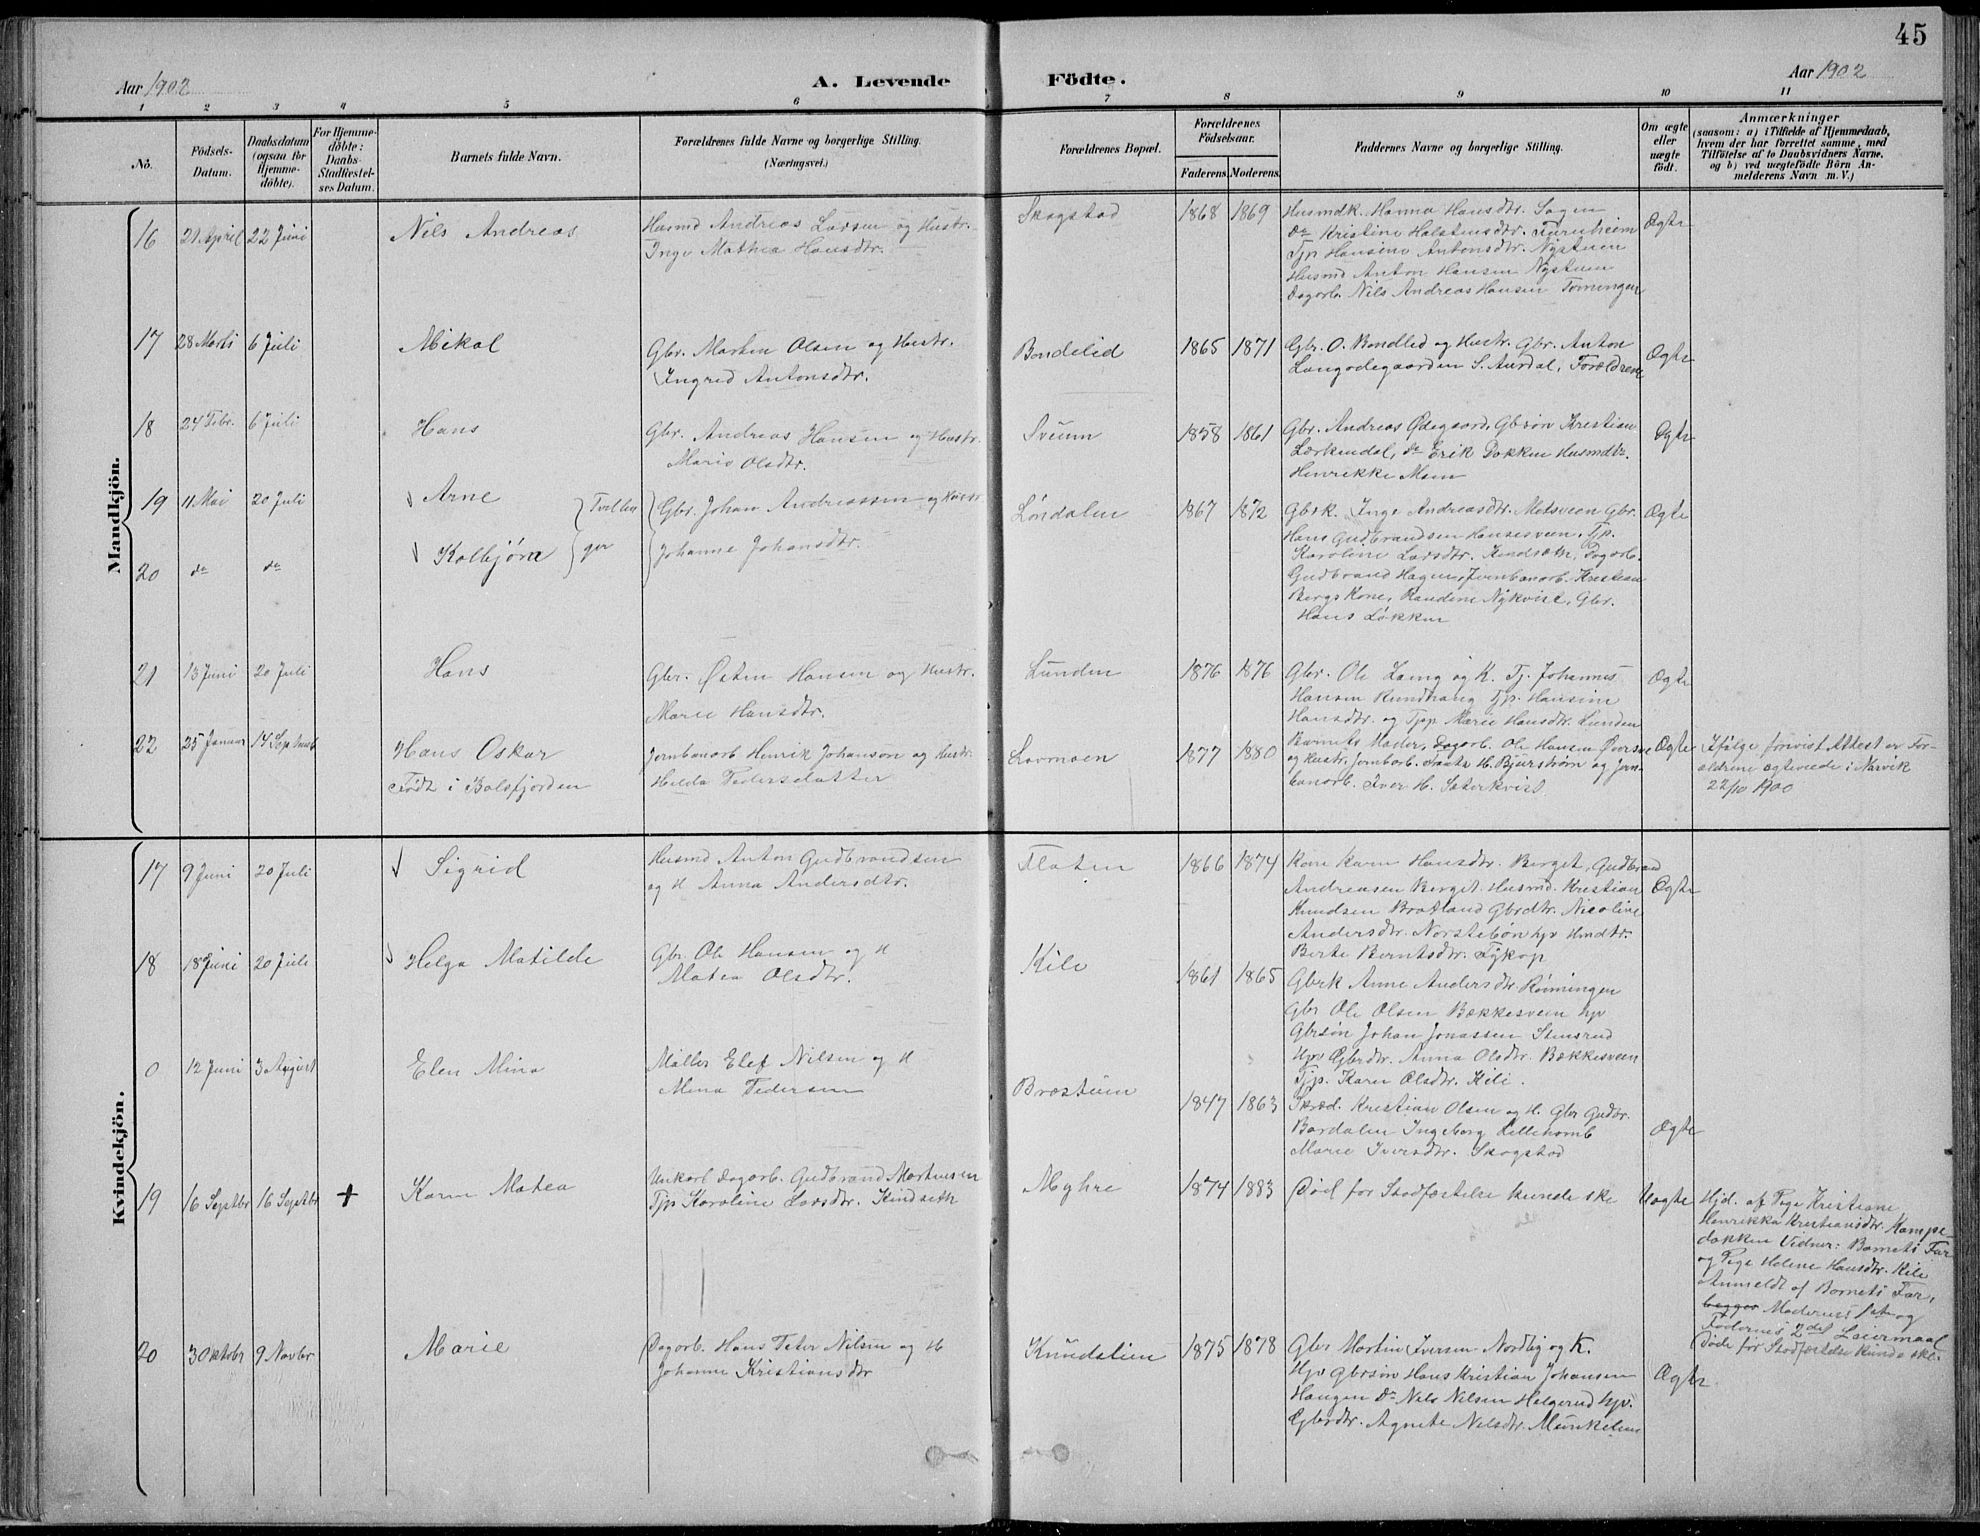 45
Aar 1902
A. Levende Födte.
Aar 1902
1 2 3 4 5 6 7 8 9 10 11
No.
Födsels-Datum.
Daabsdatum (ogsaa for Hjemme-döbte).
For Hjemme-döbte: Daabs-Stadfæstel-ses Datum.
Barnets fulde Navn.
Forældrenes fulde Navne og borgerlige Stilling.
(Næringsvei.)
Forældrenes Bopæl.
Forældrenes Födselsaar.
Faderens. Moderens.
Faddernes Navne og borgerlige Stilling.
Om ægte eller uægte födt.
Anmærkninger
(saasom: a) i Tilfælde af Hjemmedaab,
hvem der har forrettet samme, med
Tilföielse af to Daabsvidners Navne,
og b) ved uægtefödte Börn An-
melderens Navn m. V.)
Mandkjön.
16 21 April 22 Juni
Nils Andreas
Husmd Andreas Larsen og Hustr.
Inge Mathea Hansdtr.
Skogstad
1868 1869
Husmdk. Hanna Hansdtr. Sagen
do Kristine Halstensdtr.
Tjp Hansine Antonsdtr. Nystuen
Husmd Anton Hansen Nystuen
Dagarb. Nils Andreas Hansen Tømmingen
Ægte
17 28 Marts 6 Juli
Mikal
Gbr. Morten Olsen og Hustr.
Ingred Antonsdtr.
Bondelid
1865 1871
Gbr. O. Bondlid og Hustr. Gbr. Anton
Langødegaarden S. Aurdal, Forældrene
Ægte
18 24 Febr. 6 Juli
Hans
Gbr. Andreas Hansen og Hustr.
Marie Olsdtr.
Sveum
1858 1861
Gbr. Andreas Ødegaard, Gbsøn Kristian
Lærkendal, do Erik Dokken Husmdtr.
Henrikke Moen
Ægte
19 11 Mai 20 Juli
Arne
20 do do
Kolbjørn
Tvillinger
Gbr. Johan Andreassen og Hustr
Johanne Johansdtr.
Løndalen
1867 1872
Gbrk. Inge Andreasdtr. Metsveen Gbr.
Hans Gudbrandsen Hansesveen, Tjp.
Karoline Larsdtr. Kindseth, Dagarb.
Gudbrand Hagen, Jernbanarb. Kristian
Bergs Kone, Randine Nykvist, Gbr.
Hans Løkken
Ægte
21 13 Juni 20 Juli
Hans
Gbr. Østen Hansen og Hustr.
Marie Hansdtr.
Lunden
1876 1876
Gbr. Ole Laing og K. Tj. Johannes
Hansen Rundhaug Tjp. Hansine
Hansdtr. og Tjp. Marie Hansdtr. Lunden
Ægte
22 25 Januar 14 Septemb
Hans Oskar
Født i Balsfjorden
Jernbanarb Henrik Johansson og Hustr
Hilda Pedersdatter
Lovmoen
1877 1880
Barnets Moder, Dagarb. Ole Hansen
og Hustr, Jernbarb. H. Bjurstrøm og Jern-
banarb. Iver H. Säterkvist.
Ægte
Ifølge forevist Attest er For-
ældrene egteviede i Narvik
22/10 1900
Kvindekjön.
17 9 Juni 20 Juli
Sigrid
Husmd Anton Gudbrandsen
og H Anna Andersdtr.
Flaten
1866 1874
Kone Karen Hansdtr. Berget, Gudbrand
Andreasen Berget. Husmd. Kristian
Knudsen Bratland Gbrdtr. Nicoline
Andersdtr. Norstebøn hjv Hmdtr.
Berte Berntsdtr.
Ægte
18 18 Juni 20 Juli
Helga Matilde
Gbr. Ole Hansen og H
Matea Olsdtr.
Kile
1861 1865
Gbrk Anne Andersdtr
Gbr Ole Olsen Bækkesveen hjv
Gbrsøn Johan Jonassen Stensrud
Hjv Gbrdtr. Anna Olsdtr. Bækkesveen
Tjp. Karen Olsdtr. Kili.
0 12 Juni 3 August
Elen Mina
Møller Elef Nilsen og H
Mina Pedersen
Brøstuen
1847 1863
Skræd. Kristian Olsen og H. Gbr Gudbr.
Bardalen Ingeborg
Marie Iversdtr. Skogstad
Ægte
19 16 Septbr 16 Septbr +
Karen Matea
Unkarl Dagarb. Gudbrand Mortensen
Tjp Karoline Larsdtr. Kindseth
Myhre
1874 1883
Død før Stadfæstelse kunde ske
Uægte
Hjd. af Pige Kristiane
Henrikka Kristiansdtr. Kampe-
dokken Vidner: Barnets Far
og Pige Helene Hansdtr. Kile
Anmeldt af Barnets Far,
Moderens 1ste og
Faderens 2det Leiermaal
Døde før Stadfæstelse kunde ske.
20 3 Oktobr 9 Novbr
Marie
Dagarb. Hans Peter Nilsen og H
Johanne Kristiansdtr
Knudslien
1875 1878
Gbr Martin Iversen Nordlig og K.
Hjv gbrsøn Hans Kristian Johansen
Haugen Do Nils Nilsen Helgerud hjv.
Gbrdtr. Agnete Nilsdtr.
Ægte